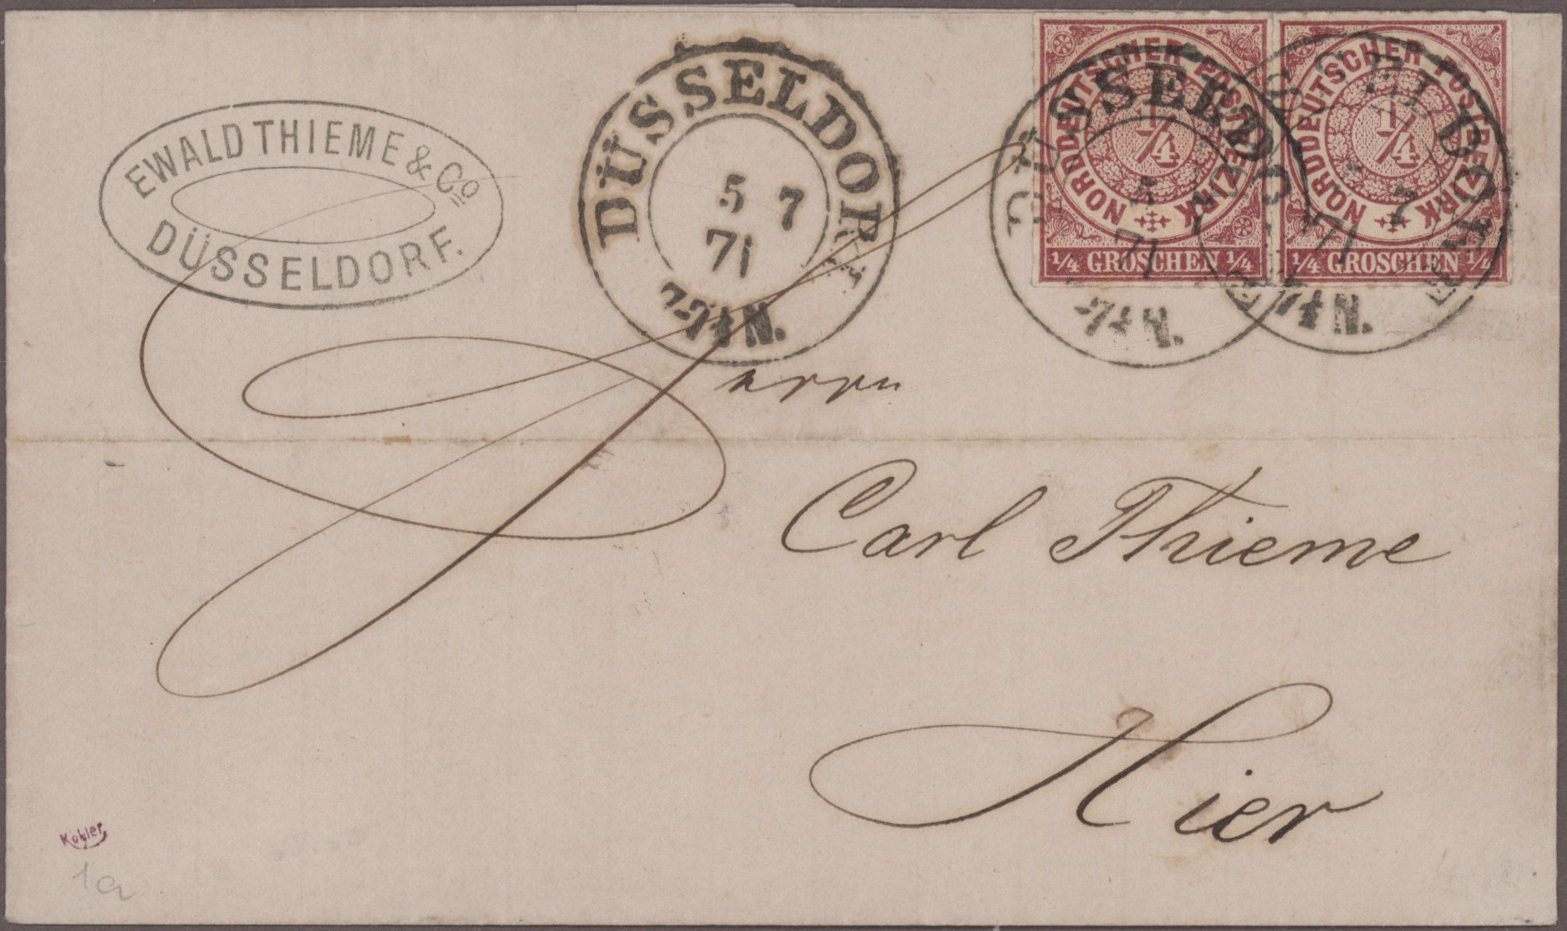 EWALD THIEME & Co
DÜSSELDORF.
DÜSSELDORF
5 7
71
7-8 N.
NORDDEUTSCHER POSTBEZIRK
1/4
1/4 GROSCHEN 1/4
NORDDEUTSCHER POSTBEZIRK
1/4
1/4 GROSCHEN 1/4
DÜSSELDORF
5
71
N.
DORF
7
71
N.
Herrn
Carl Thieme
Hier
Köhler
1a